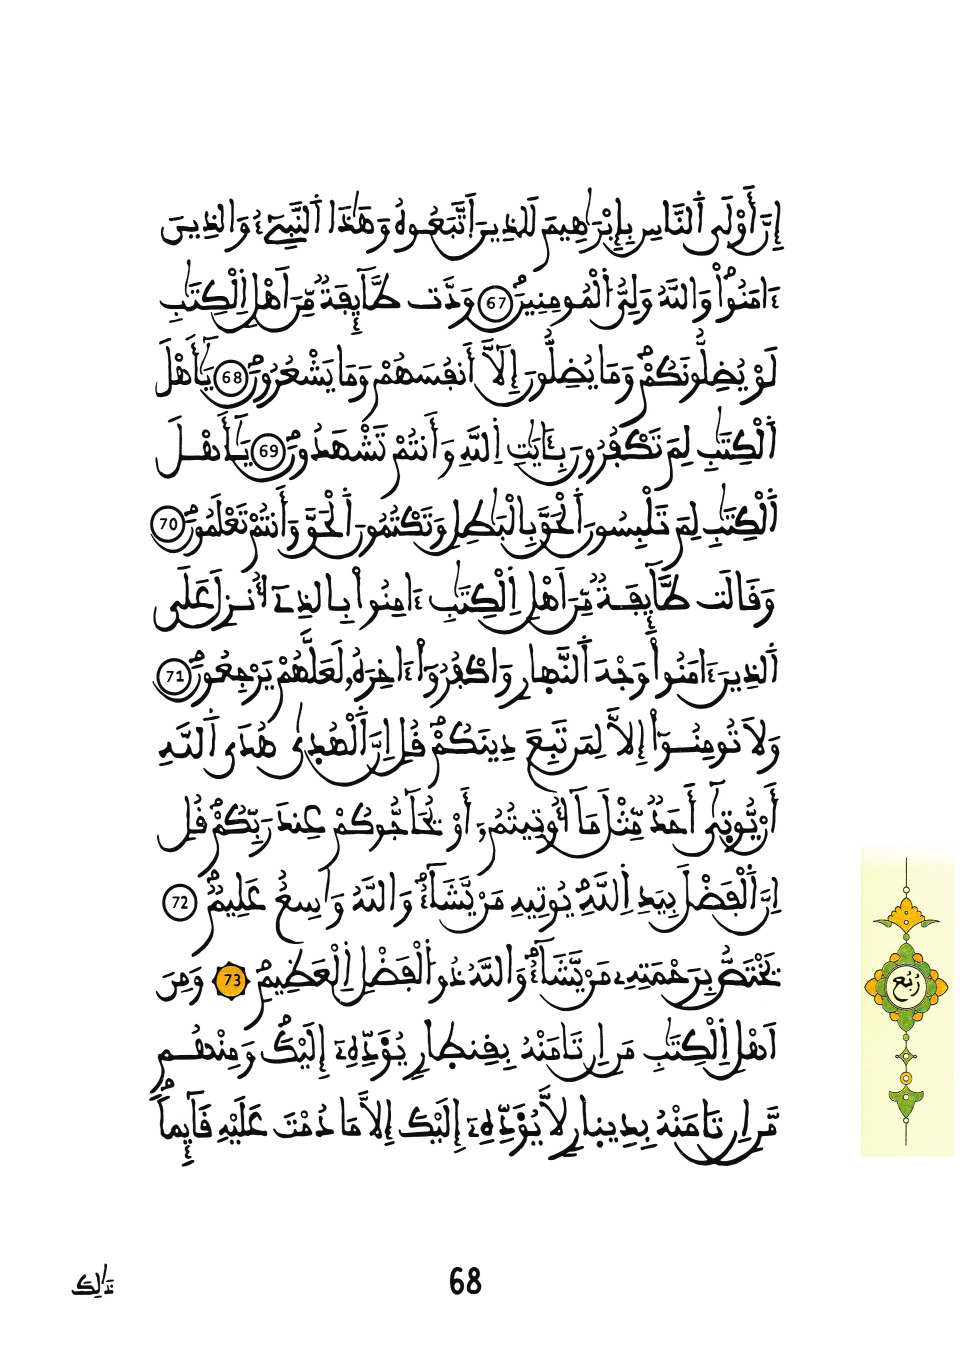 إِنَّ أَوْلَى اَ۬لنَّاسِ بِإِبْرَٰهِيمَ لَلذِينَ اَ۪تَّبَعُوهُ وَهَٰذَا اَ۬لنَّبِيٓءُ وَالذِينَ
ءَامَنُواْۖ وَاللَّهُ وَلِيُّ اُ۬لْمُومِنِينَۖ 67 وَدَّت طَّآئِفَةٞ مِّنَ اَهْلِ اِ۬لْكِتَٰبِ
لَوْ يُضِلُّونَكُمْۖ وَمَا يُضِلُّونَ إِلَّآ أَنفُسَهُمْ وَمَا يَشْعُرُونَۖ 68 يَٰٓأَهْلَ
اَ۬لْكِتَٰبِ لِمَ تَكْفُرُونَ بِـَٔايَٰتِ اِ۬للَّهِ وَأَنتُمْ تَشْهَدُونَۖ 69 يَٰٓأَهْلَ
اَ۬لْكِتَٰبِ لِمَ تَلْبِسُونَ اَ۬لْحَقَّ بِالْبَٰطِلِ وَتَكْتُمُونَ اَ۬لْحَقَّ وَأَنتُمْ تَعْلَمُونَۖ 70
وَقَالَت طَّآئِفَةٞ مِّنَ اَهْلِ اِ۬لْكِتَٰبِ ءَامِنُواْ بِالذِےٓ أُنزِلَ عَلَى
اَ۬لذِينَ ءَامَنُواْ وَجْهَ اَ۬لنَّهِارِ وَاكْفُرُوٓاْ ءَاخِرَهُۥ لَعَلَّهُمْ يَرْجِعُونَۖ 71
وَلَا تُومِنُوٓاْ إِلَّا لِمَن تَبِعَ دِينَكُمْۖ قُلِ اِنَّ اَ۬لْهُد۪ىٰ هُدَى اَ۬للَّهِ
أَنْ يُّوتَىٰٓ أَحَدٞ مِّثْلَ مَآ أُوتِيتُمُۥٓ أَوْ يُحَآجُّوكُمْ عِندَ رَبِّكُمْۖ قُلِ
اِنَّ اَ۬لْفَضْلَ بِيَدِ اِ۬للَّهِۖ يُوتِيهِ مَنْ يَّشَآءُۖ وَاللَّهُ وَٰسِعٌ عَلِيمٞۖ 72
يَخْتَصُّ بِرَحْمَتِهِۦ مَنْ يَّشَآءُۖ وَاللَّهُ ذُو اُ۬لْفَضْلِ اِ۬لْعَظِيمِۖ 73 وَمِنَ
اَهْلِ اِ۬لْكِتَٰبِ مَنِ اِن تَامَنْهُ بِقِنط۪ارٖ يُؤَدِّهِۦٓ إِلَيْكَۖ وَمِنْهُم
مَّنِ اِن تَامَنْهُ بِدِين۪ارٖ لَّا يُؤَدِّهِۦٓ إِلَيْكَ إِلَّا مَا دُمْتَ عَلَيْهِ قَآئِماٗۖ
رُبُع
ذَٰلِكَ
68